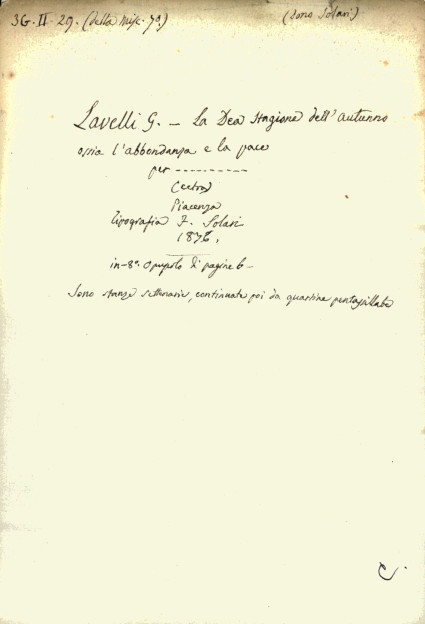 3G. II. 29. (della Misc. 70.) (dono Solari)
Lavelli G. – La Dea Stagione dell'autunno
ossia l'abbondanza e la pace
per ----------
(cetra)
Piacenza
Tipografia F. Solari
1876,
in-8°. Opuscolo di pagine 6 –
Sono stanze settenarie, continuate poi da quartine pentasillabe
C.